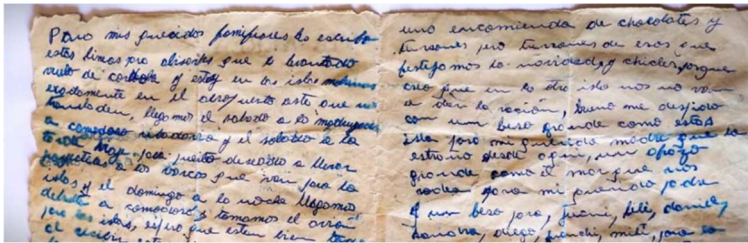 Para mis queridos familiares les escribo
estas lineas pra abisarles que e levantado
vuelo de y estoy en las islas malvinas
en el aeropuerto asta que nos
trasladen, llegamos el sabado a la madrugada
a comodoro ribadavia y el sabado a la
tarde para puerto deseado a llevar
a los barcos que ivan para las
islas y el domingo a la noche llegamos
debuelta a comodoro y tomamos el avion
para las islas, espero que esten bien todos
al recibir esta
una encomienda de chocolates y
turrones pero turrones de esos que
festejamos la navidad, y chicles, porque
creo que en la otra isla nos no van
a dar la ración, bueno me despido
con un beso grande como estas
isla para mi querida madre que la
extraño desde aqui, un abrazo
grande como el mar que nos
rodea para mi querido padre
y un beso para, juani, lili, daniel,
sandra, diego, panchi, mili, para la